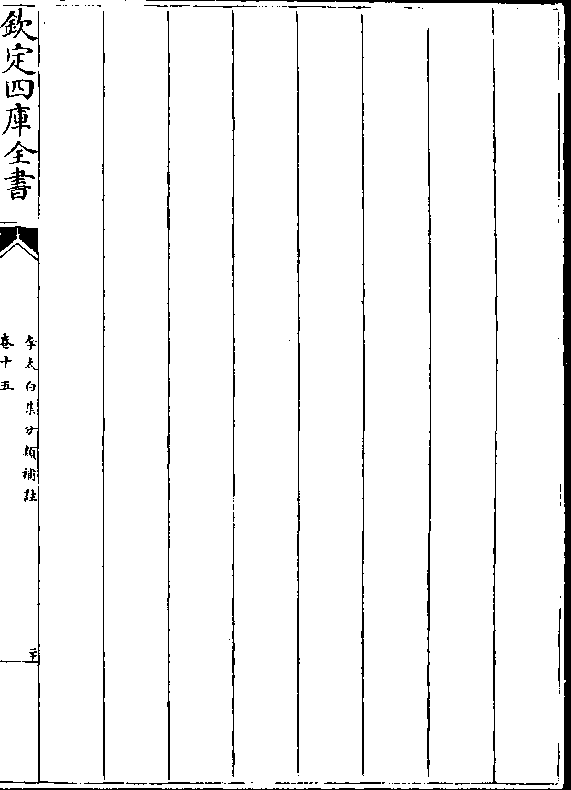 欽定四庫全書
李太白集分類補註
卷十五